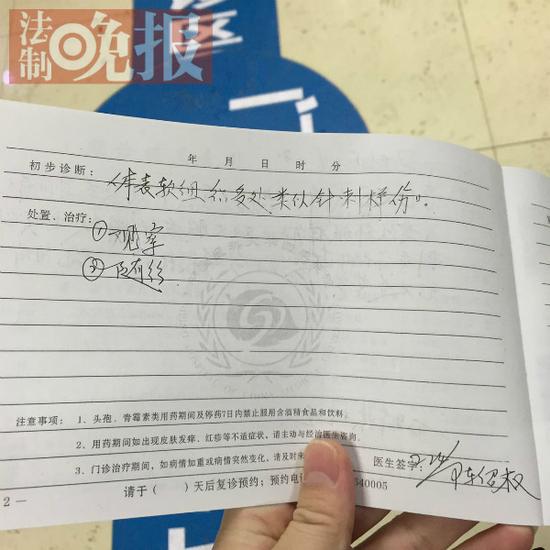 法制晚报
年 月 日 时 分
初步诊断： 体表软组织多处类似针刺样伤。
处置、治疗：
①观察
②
注意事项： 1、头孢、青霉素类用药期间及停药7日内禁止服用含酒精食品和饮料。
2、用药期间如出现皮肤发痒、红疹等不适症状，请主动与经治医生咨询。
3、门诊治疗期间，如病情加重或病情突然变化，请及时来
医生签字：
请于（ ）天后复诊预约；预约电 540005
2 —